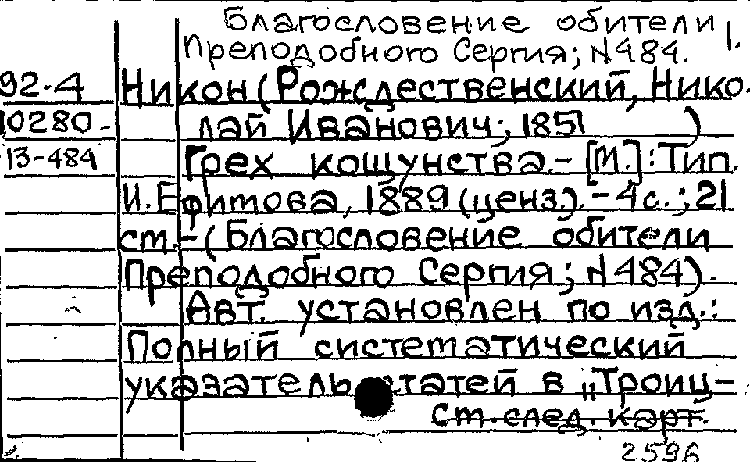 Благословение обители 1.
Преподобного Сергия; N484.
92-4 Никон (Рождественский, Нико-
10280- лай Иванович; 1851 )
13-484 Грех кощунства.- [М.]: Тип.
И. Ефимова, 1889 (ценз.). - 4 с.; 21
см.- (Благословение обители
Преподобного Сергия; N484).
Авт. установлен по изд.:
Полный систематический
указатель статей в „Троиц-
См. след. карт.
2596